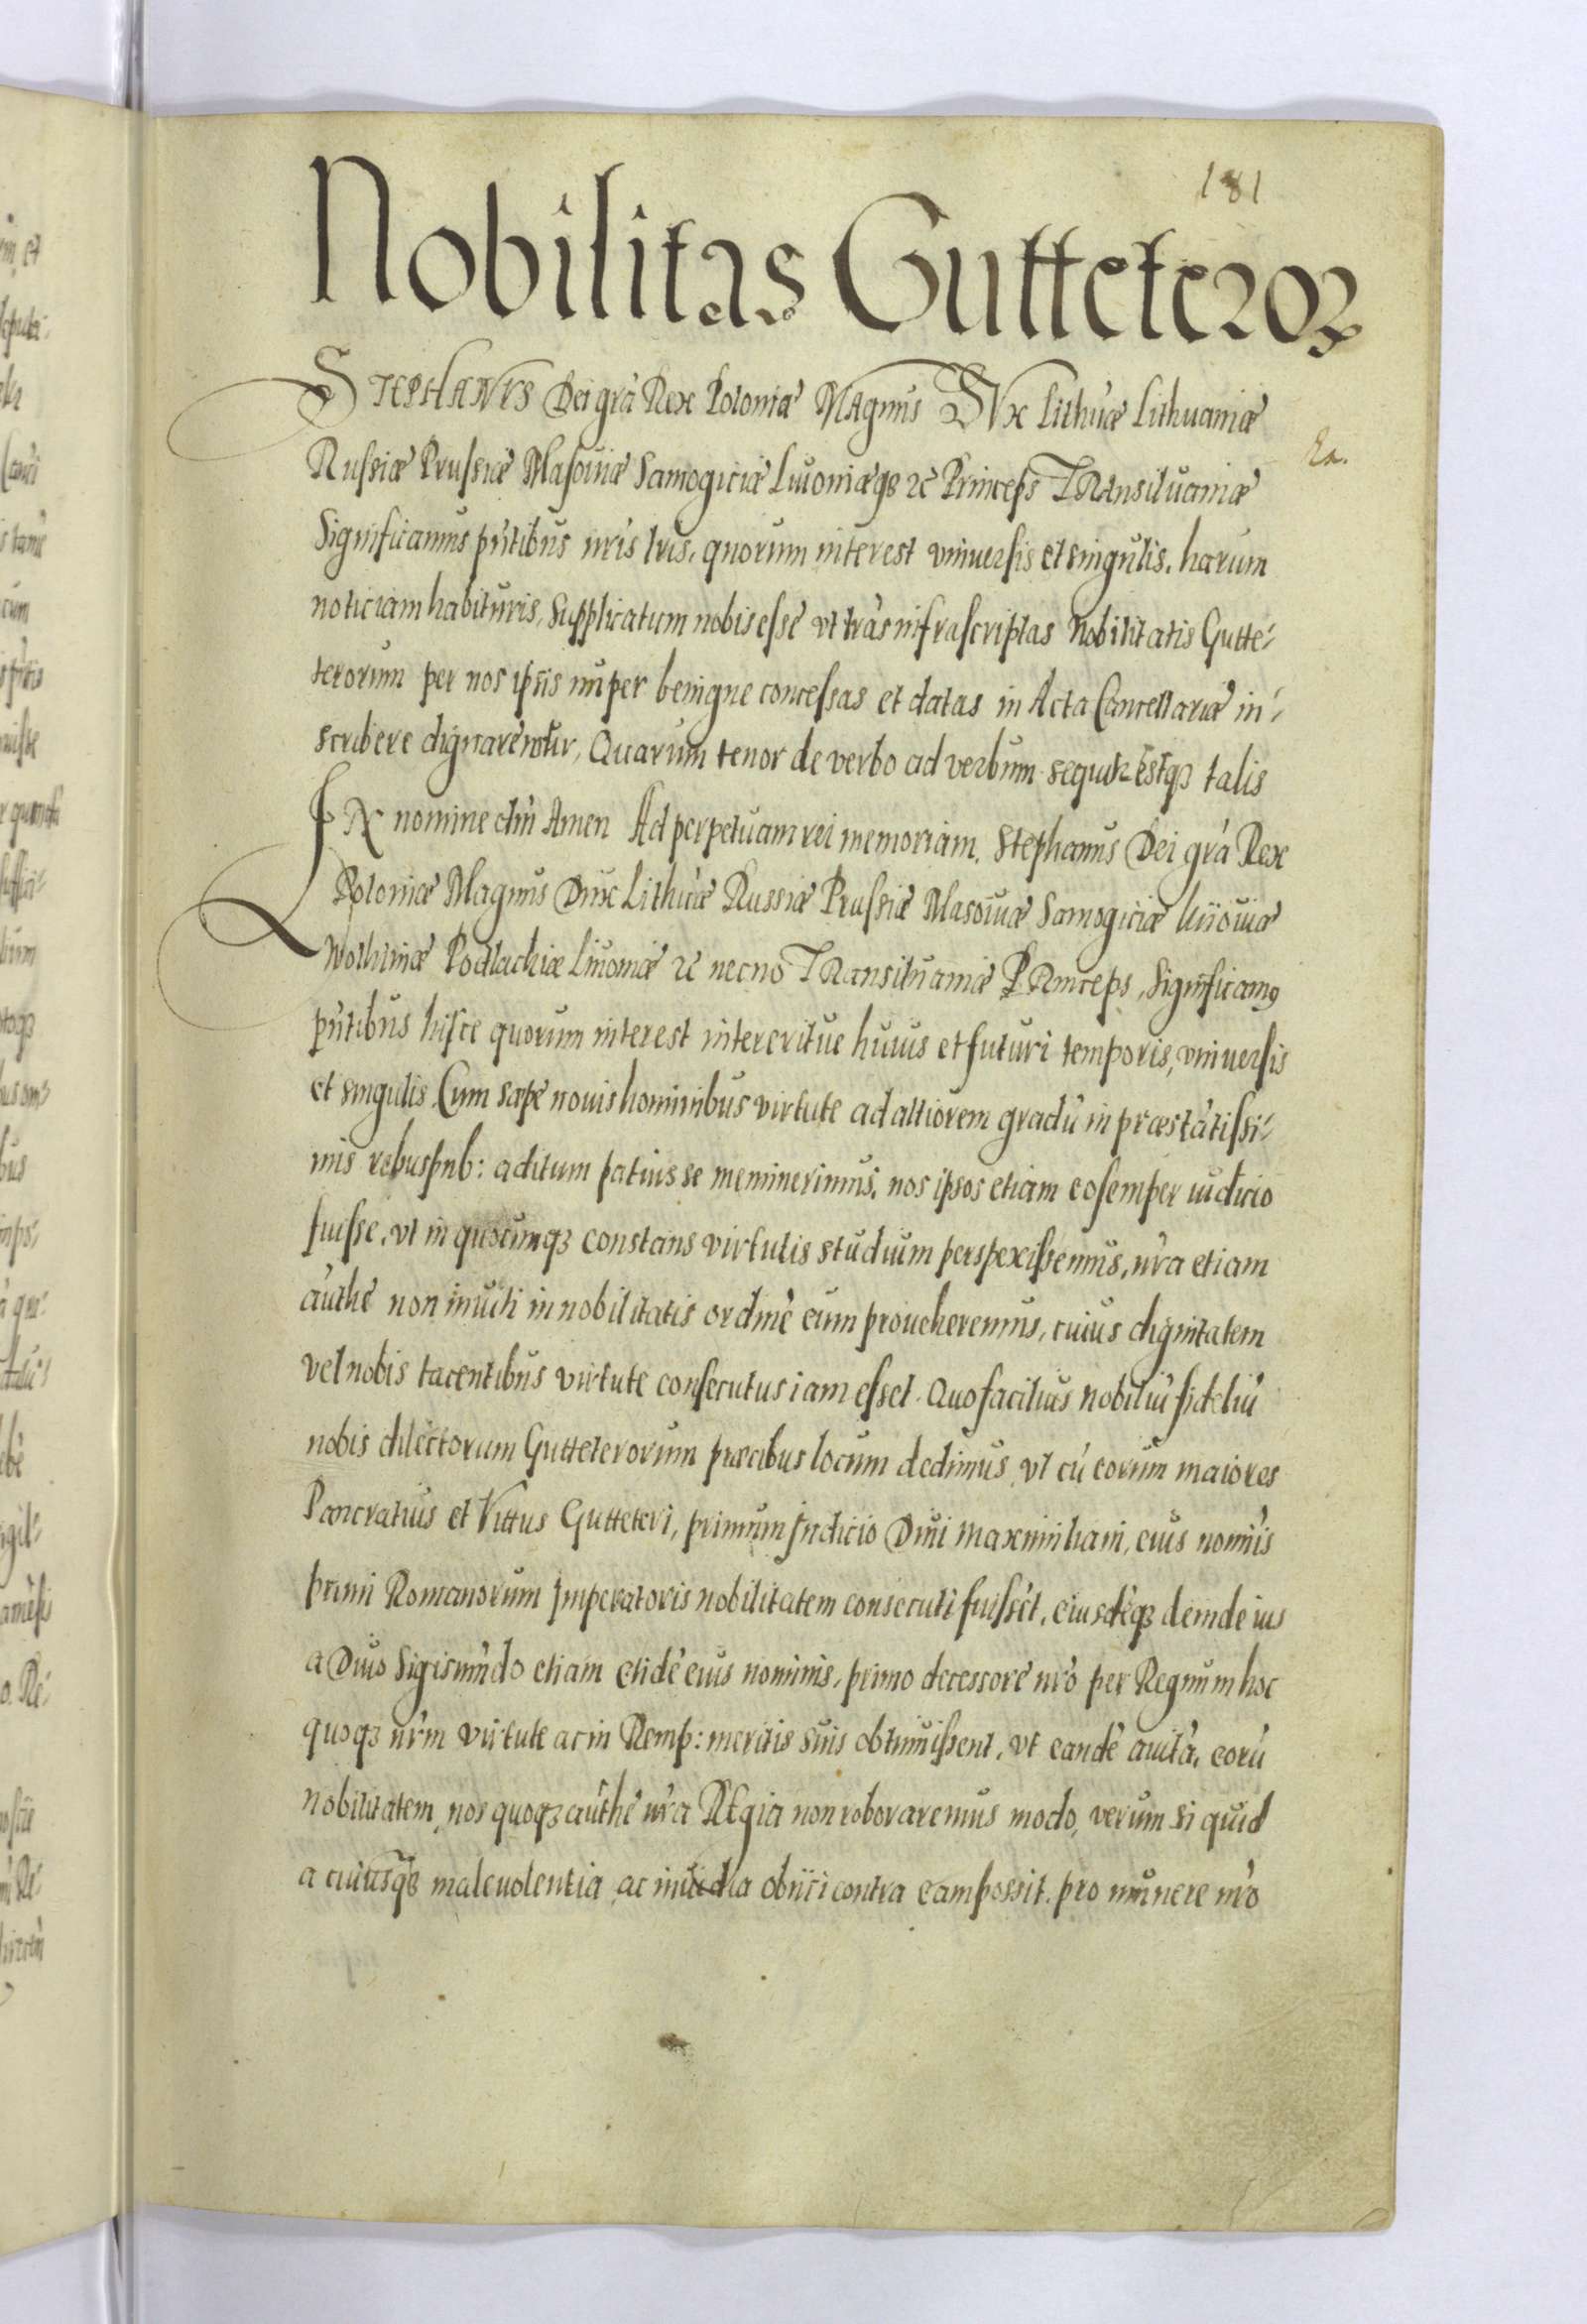 181
Nobilitas Gutteteroꝝ
STEPHANVS Dei grã Rex Poloniæ Magnus DVx Lithuæ Lithuaniæ
Ra.
Russiæ Prussiæ Masouiæ Samogiciæ Liuoniæqȝ ꝛc Princeps TRAnsiluaniæ
Significamus pñtibus nr̃is lr̃is, quorum interest vniuersis et singulis, harum
noticiam habituris, Supplicatum nobis esse vt lr̃as infrascriptas Nobilitatis Gutte-
terorum per nos ipsis nuper benigne concessas et datas in Acta Cancellariæ in-
scribere dignaremur, Quarum tenor de verbo ad verbum sequitꝛ estqȝ talis
IN nomine dñi Amen Ad perpetuam rei memoriam. Stephanus Dei grã Rex
Poloniæ Magnus Dux Lithuæ Russiæ Prussiæ Masouiæ Samogiciæ kiiouiæ
Wolhiniæ Podlachiæ Liuoniæ ꝛc necno TRansiluaniæ PRinceps, Significamꝰ
pñtibus hisce quorum interest intereritue huius et futuri temporis, vniuersis
et singulis. Cum sæpe nouis hominibus virtute ad altiorem gradũ in præstãtissi-
mis rebuspub: aditum patuisse meminerimus, nos ipsos etiam eo semper iudicio
fuisse, vt in quocunqȝ constans virtutis studium perspexissemus, nr̃a etiam
authẽ non inuiti in nobilitatis ordinẽ eum proueheremus, cuius dignitatem
vel nobis tacentibus virtute consecutus iam esset. Quo facilius nobiliũ fideliũ
nobis dilectorum Gutteterorum præcibus locum dedimus, vt cũ eorum maiores
Pancratius et Vittus Gutteteri, primum Judicio Diui Maximiliani, eius nom̃is
primi Romanorum Imperatoris nobilitatem consecuti fuissẽt, eiusdẽqȝ deinde ius
a Diuo Sigismũdo etiam etidẽ eius nominis, primo decessore nr̃o per Regnum hoc
quoqȝ nr̃m virtute ac in Remp: meritis suis obtinuissent, vt eandẽ auitã, eorũ
nobilitatem, nos quoqȝ authẽ nr̃a REgia non roboraremus modo, verum si quid
a cuiusqȝ maleuolentia ac inuidia obiici contra eam possit, pro munere nr̃o